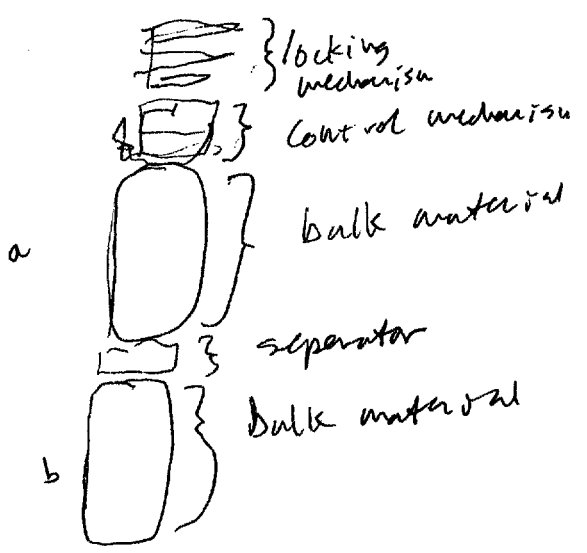 locking
mechanism
control mechanism
a
bulk material
separator
bulk material
b